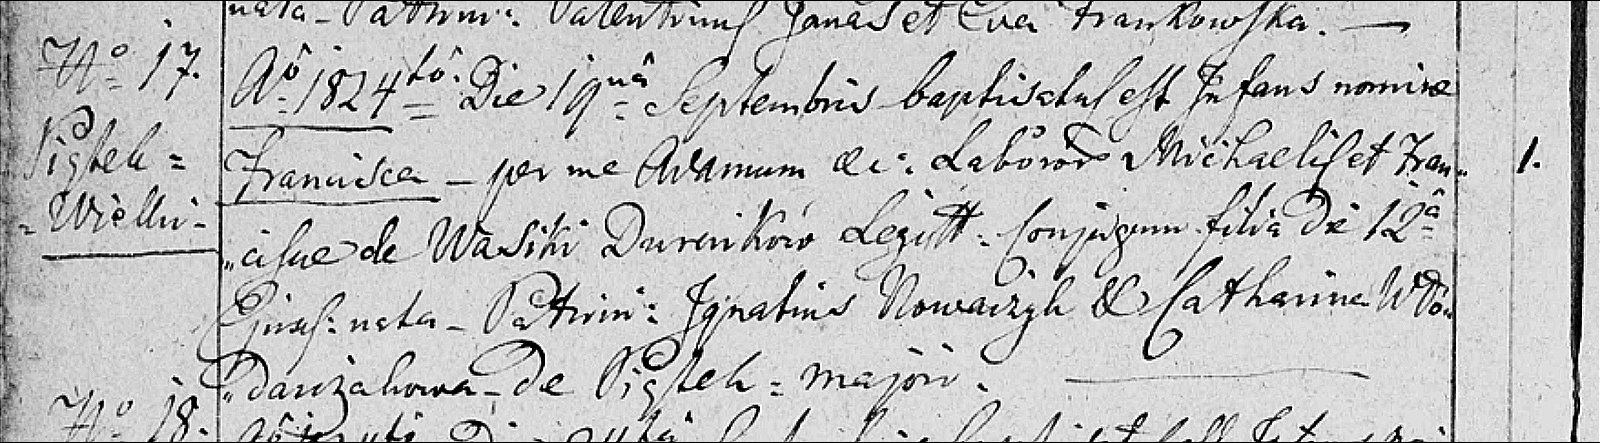 nata – Patrini: Valentinus Janas et Eva Frankowska. —
No 17.
Aô 1824tô. Die 19nâ Septembris baptisatus est Infans nomine
Piątek =
Francisca – per me Adamum &c: Laborios Michaelis et Fran„
1.
= Wielki –
„ciscae de Wasiki Durcików Legitt. Conjugum filia Die 12â
Ejusd: nata – Patrini: Ignatius Nowaczyk & Catharina Wło„
„darczakowa – de Piątek = majori.
No 18.